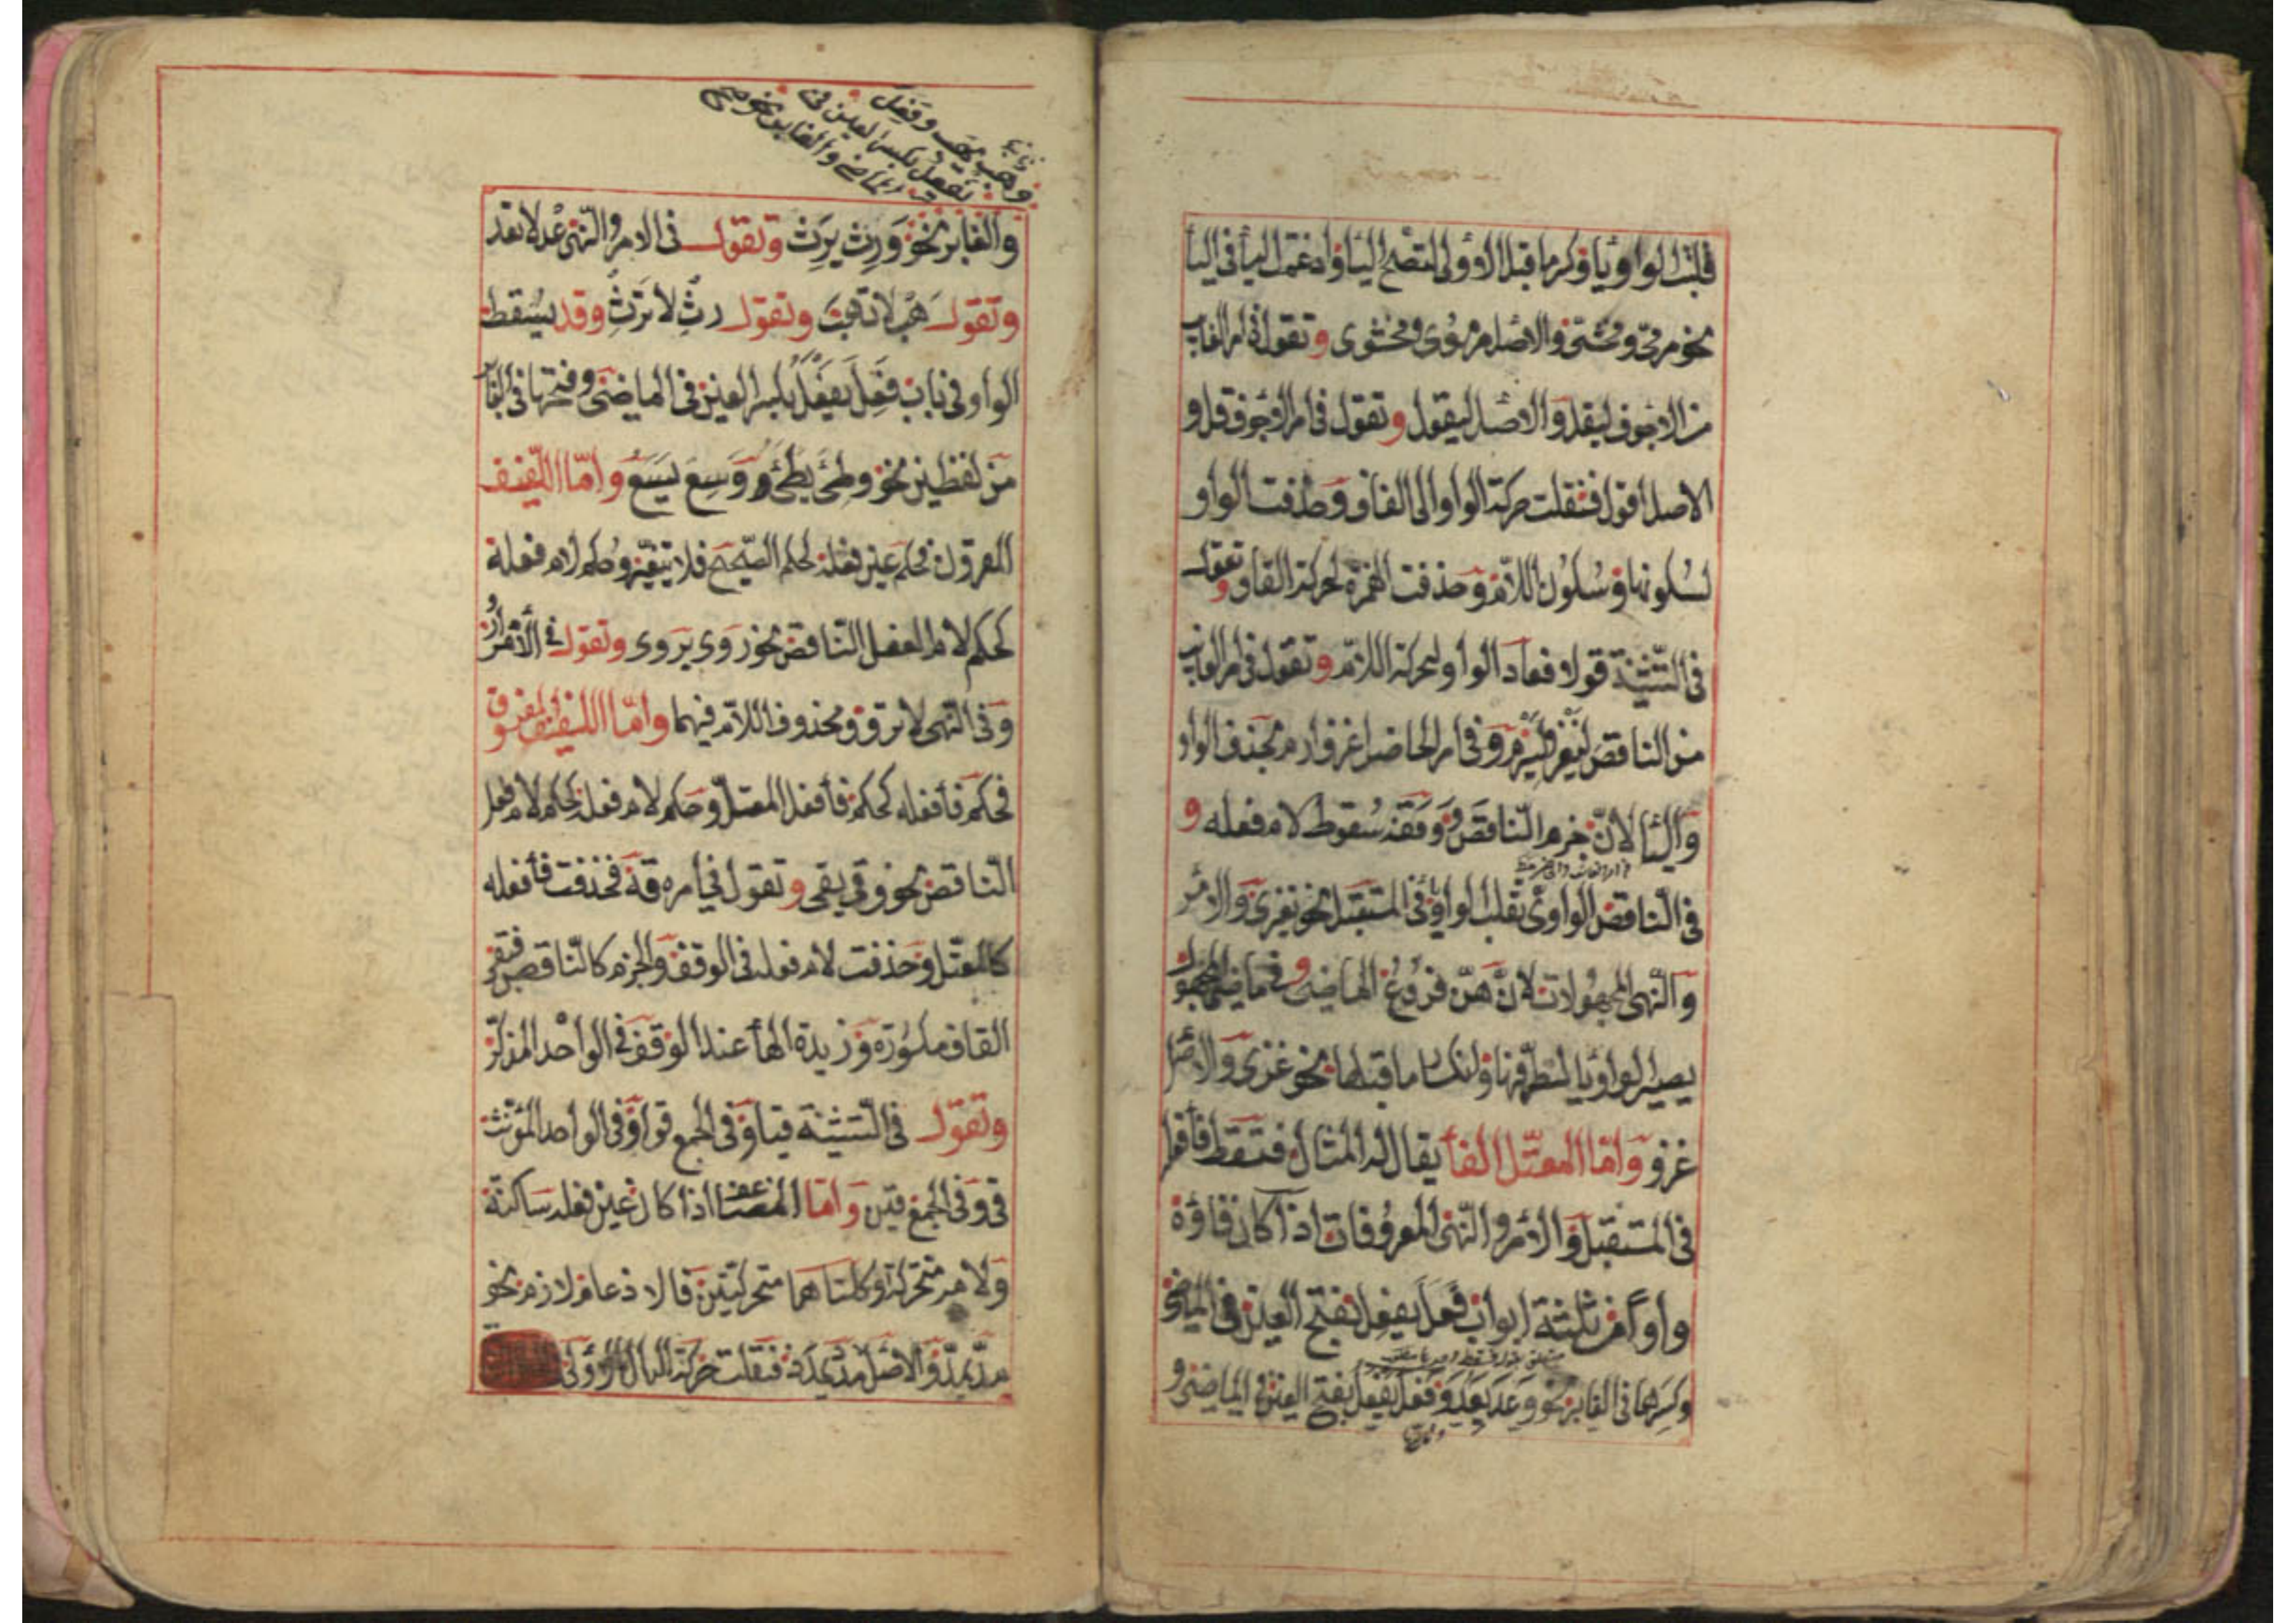 قلبت الواو ياء وكسر ما قبل الاولى لتصح الياء وادغمت الياء فى الياء
نحو مرمىّ ومخشىّ والاصل مرموى ومخشوى وتقول فى امر الغايب
من الاجوف ليقل والاصل ليقول وتقول فى امر الاجوف قل و
الاصل اقول فنقلت حركة الواو الى القاف وحذفت الواو
لسكونها وسكون اللام وحذفت الهمزة لحركة القاف وتقول
فى التثنية قولا فعاد الواو لحركة اللام وتقول فى امر الغايب
من الناقص ليغز وليرم وفى امر الحاضر اغز وارم بحذف الواو
والياء لان جزم الناقص ووقفه سقوط لام فعله و
فى الناقص الواوى تقلب الواو ياء فى المستقبل نحو تغزى والامر
والنهى المجهولات لانّ هنّ فروع الماضى وفى ماضى المجهول
يصير الواو ياء لتطرفها وانكسار ما قبلها نحو غزى والاصل
غزو وامّا المعتلّ الفاء يقال له المثال فتسقط فاء فعل
فى المستقبل والامر والنهى المعروفات اذا كان فاؤه
واوا من ثلثة ابواب فعل يفعل بفتح العين فى الماضى
وكسرها فى الغابر نحو وعد يعد وفعل يفعل بفتح العين فى الماضى و
وهب يهب وفعل
يفعل بكسر العين فى
الماضى والغابر نحو
والغابر نحو ورث يرث وتقول فى الامر والنهى عد لا تعد
وتقول هب لا تهب وتقول رث لا ترث وقد يسقط
الواو فى باب فعل يفعل بكسر العين فى الماضى وفتحها فى الغابر
من لفظين نحو وطئ يطئ ووسع يسع وامّا اللّفيف
المقرون فحكم عين فعله كحكم الصّحيح فلا يتغيّر وحكم لام فعله
كحكم لام الفعل النّاقص نحو روى يروى وتقول فى الامر ارو
وفى النهى لا ترو ومحذوف اللام فيهما وامّا اللفيف المفروق
فحكم فاء فعله كحكم فاء فعل المعتلّ وحكم لام فعله كحكم لام فعل
النّاقص نحو وقى يقى وتقول فى امره قه فحذفت فاء فعله
كالمعتّل وحذفت لام فعله فى الوقف والجزم كالنّاقص فبقى
القاف مكسورة وزيدة الهاء عند الوقف فى الواحد المذكّر
وتقول فى التّثنية قيا وفى الجمع قوا وفى الواحد المؤنث
قى وفى الجمع قين وامّا المضاعف اذا كان عين فعله ساكنة
ولامه متحركة او كلتاهما متحركتين فالادغام لازم نحو
مدّ يمدّ والاصل مدد يمدد فنقلت حركة الدال الاولى